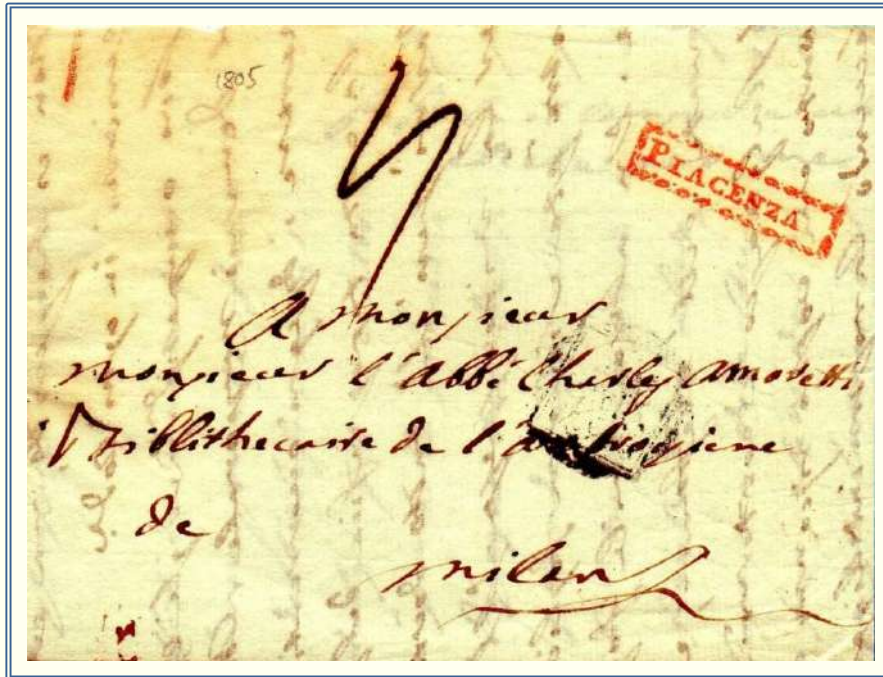 1805
PIACENZA
A Monsieur
Monsieur l'Abbé Charles Amoretti
Biblithecaire de l'ambrosiene
de
milan